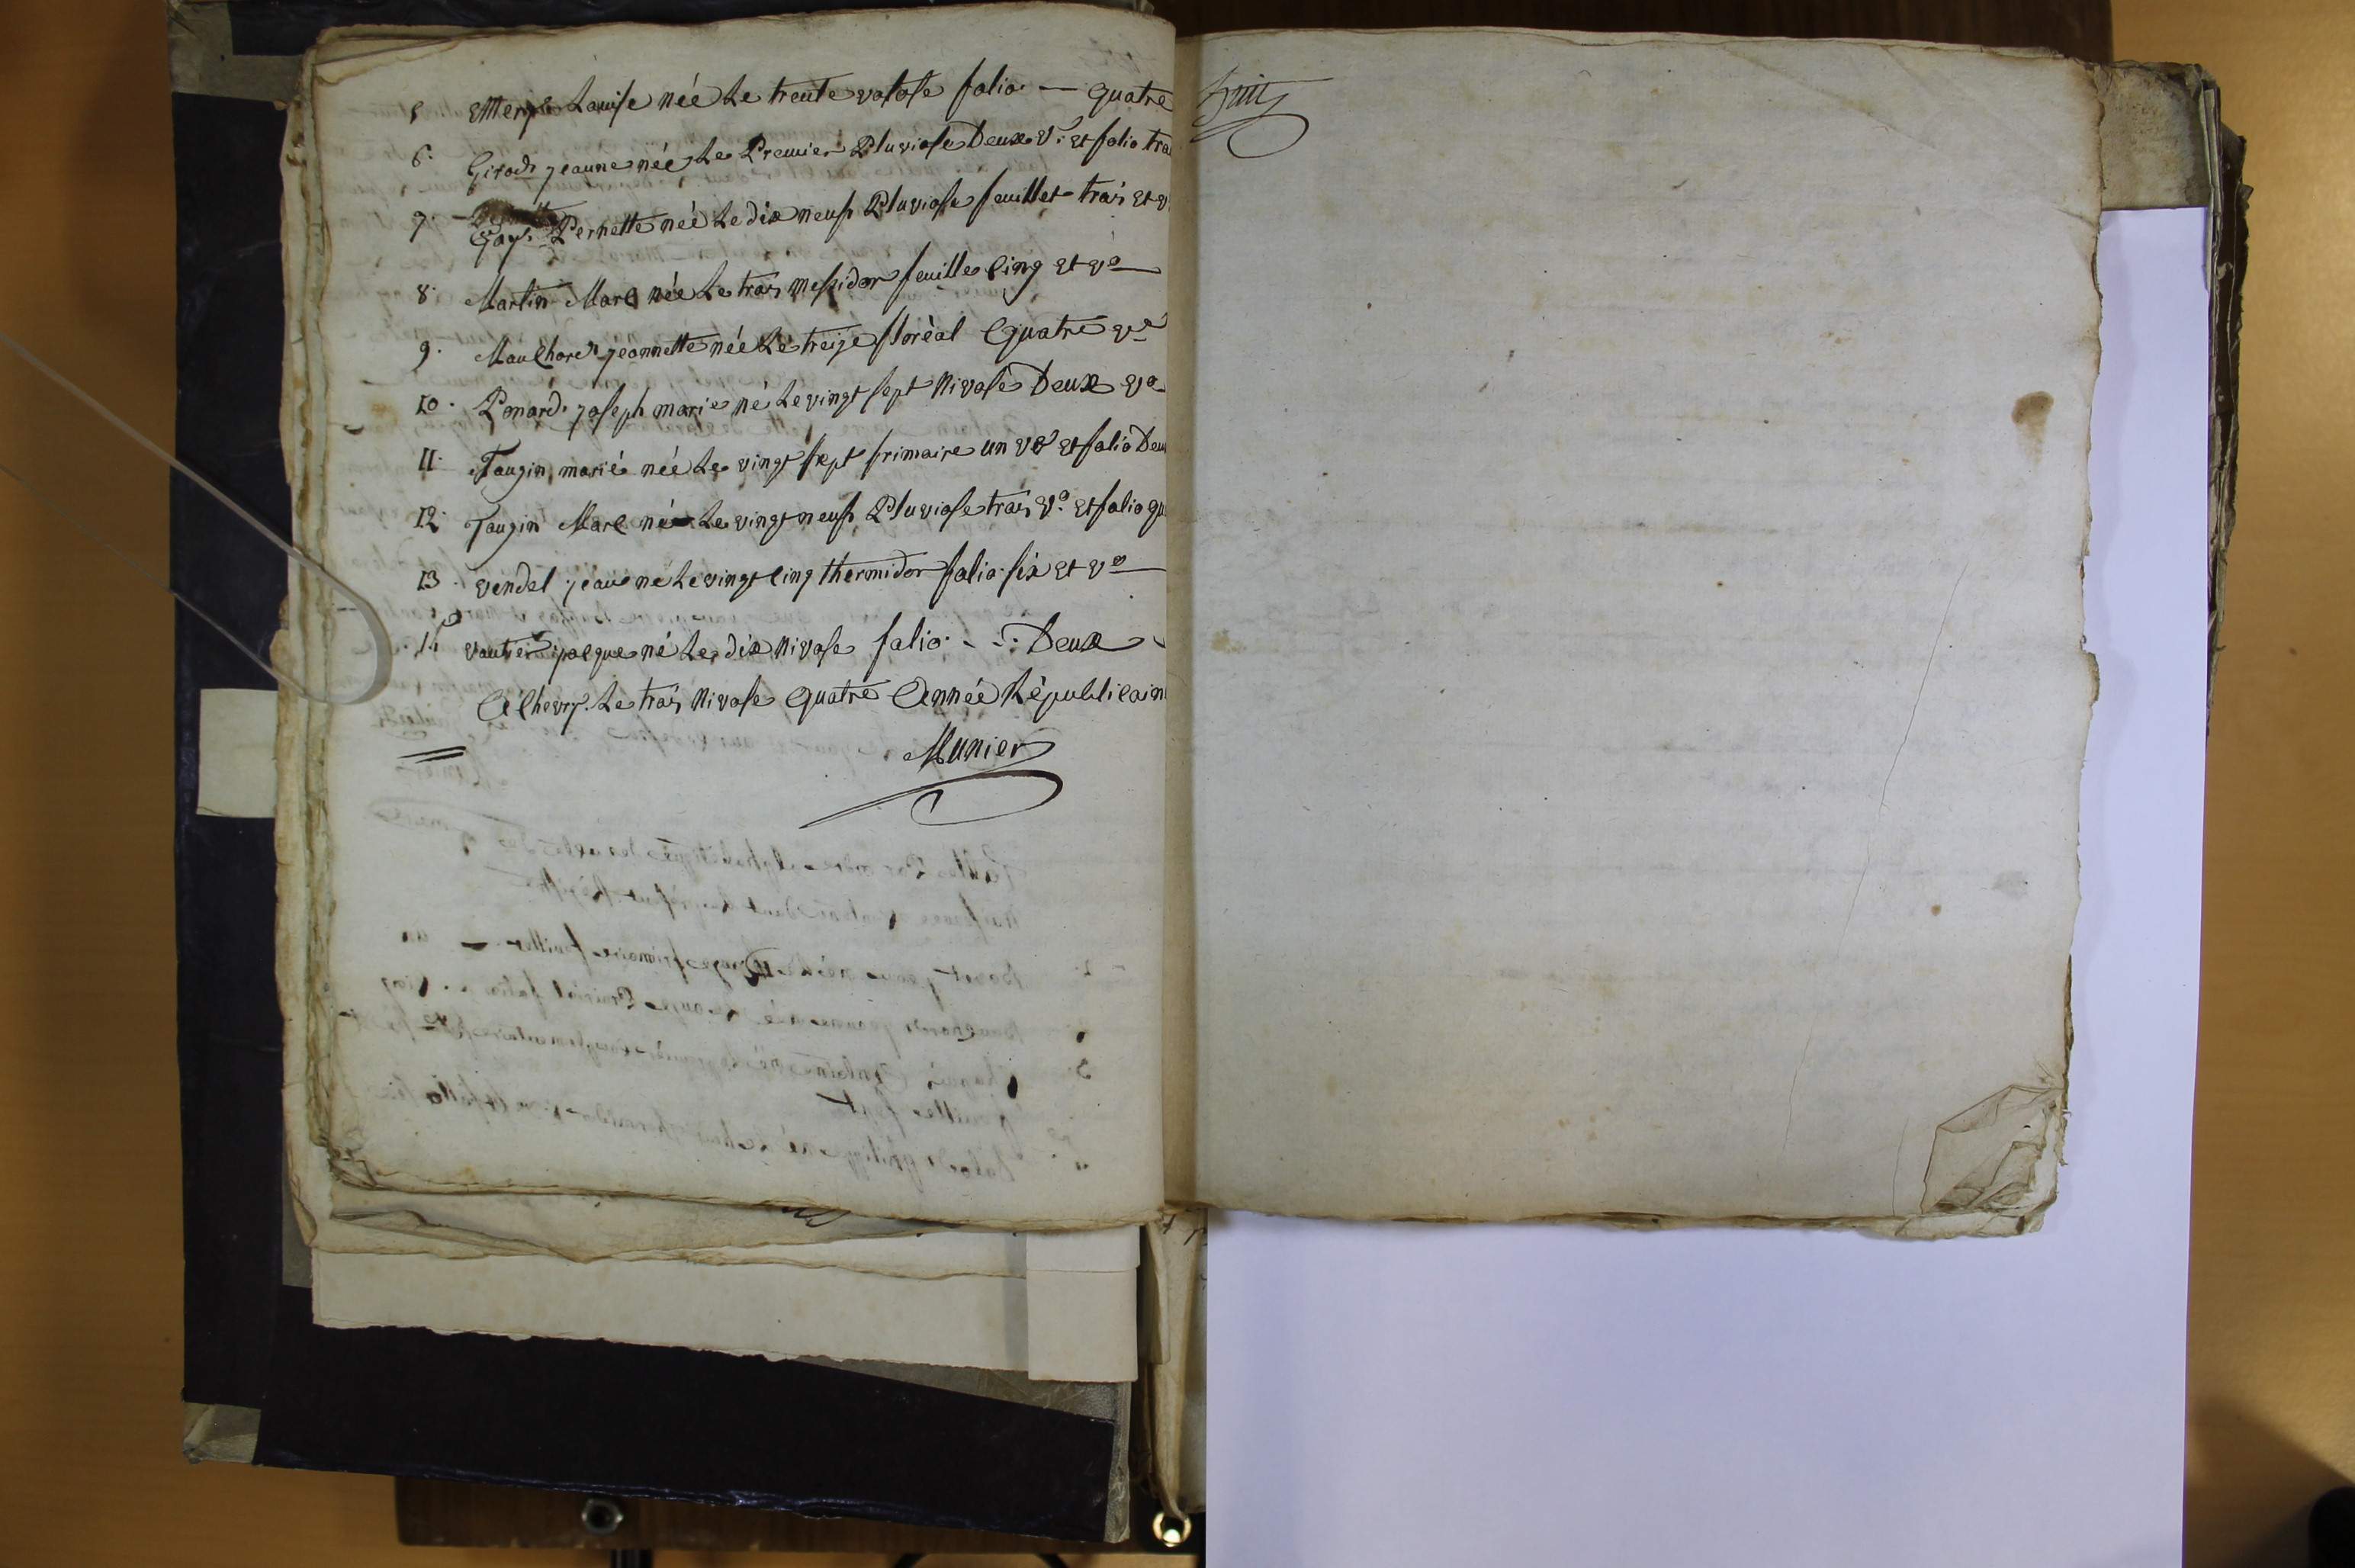 5 Emery Louise née Le trente vatose folio — quatre
6. Girod jeanne née Le Premier Pluviose Deux Vº. Et folio troi
7. Gay. Pernette née Le dix neuf Pluviose feuillet trois Et v
8. Martin Marc née Le trois Messidor feuille Cinq Et vº
9. jeannette née Le treize floréal Quatre vº
10. Ponard. joseph marie né Le vingt sept Nivose Deux vº
11. Taugin marie née Le vingt sept frimaire un vº Et folio Deu
12. Taugin Marc née Le vingt neuf Pluviose trois Vº. Et folio qu
13. Vendel né Le vingt Cinq thermidor folio six Et vº
14. Vautier jacque né Le dix Nivose folio. - -: Deux
A Chevry. Le trois Nivose Quatre Année Républicain
Munier
huit